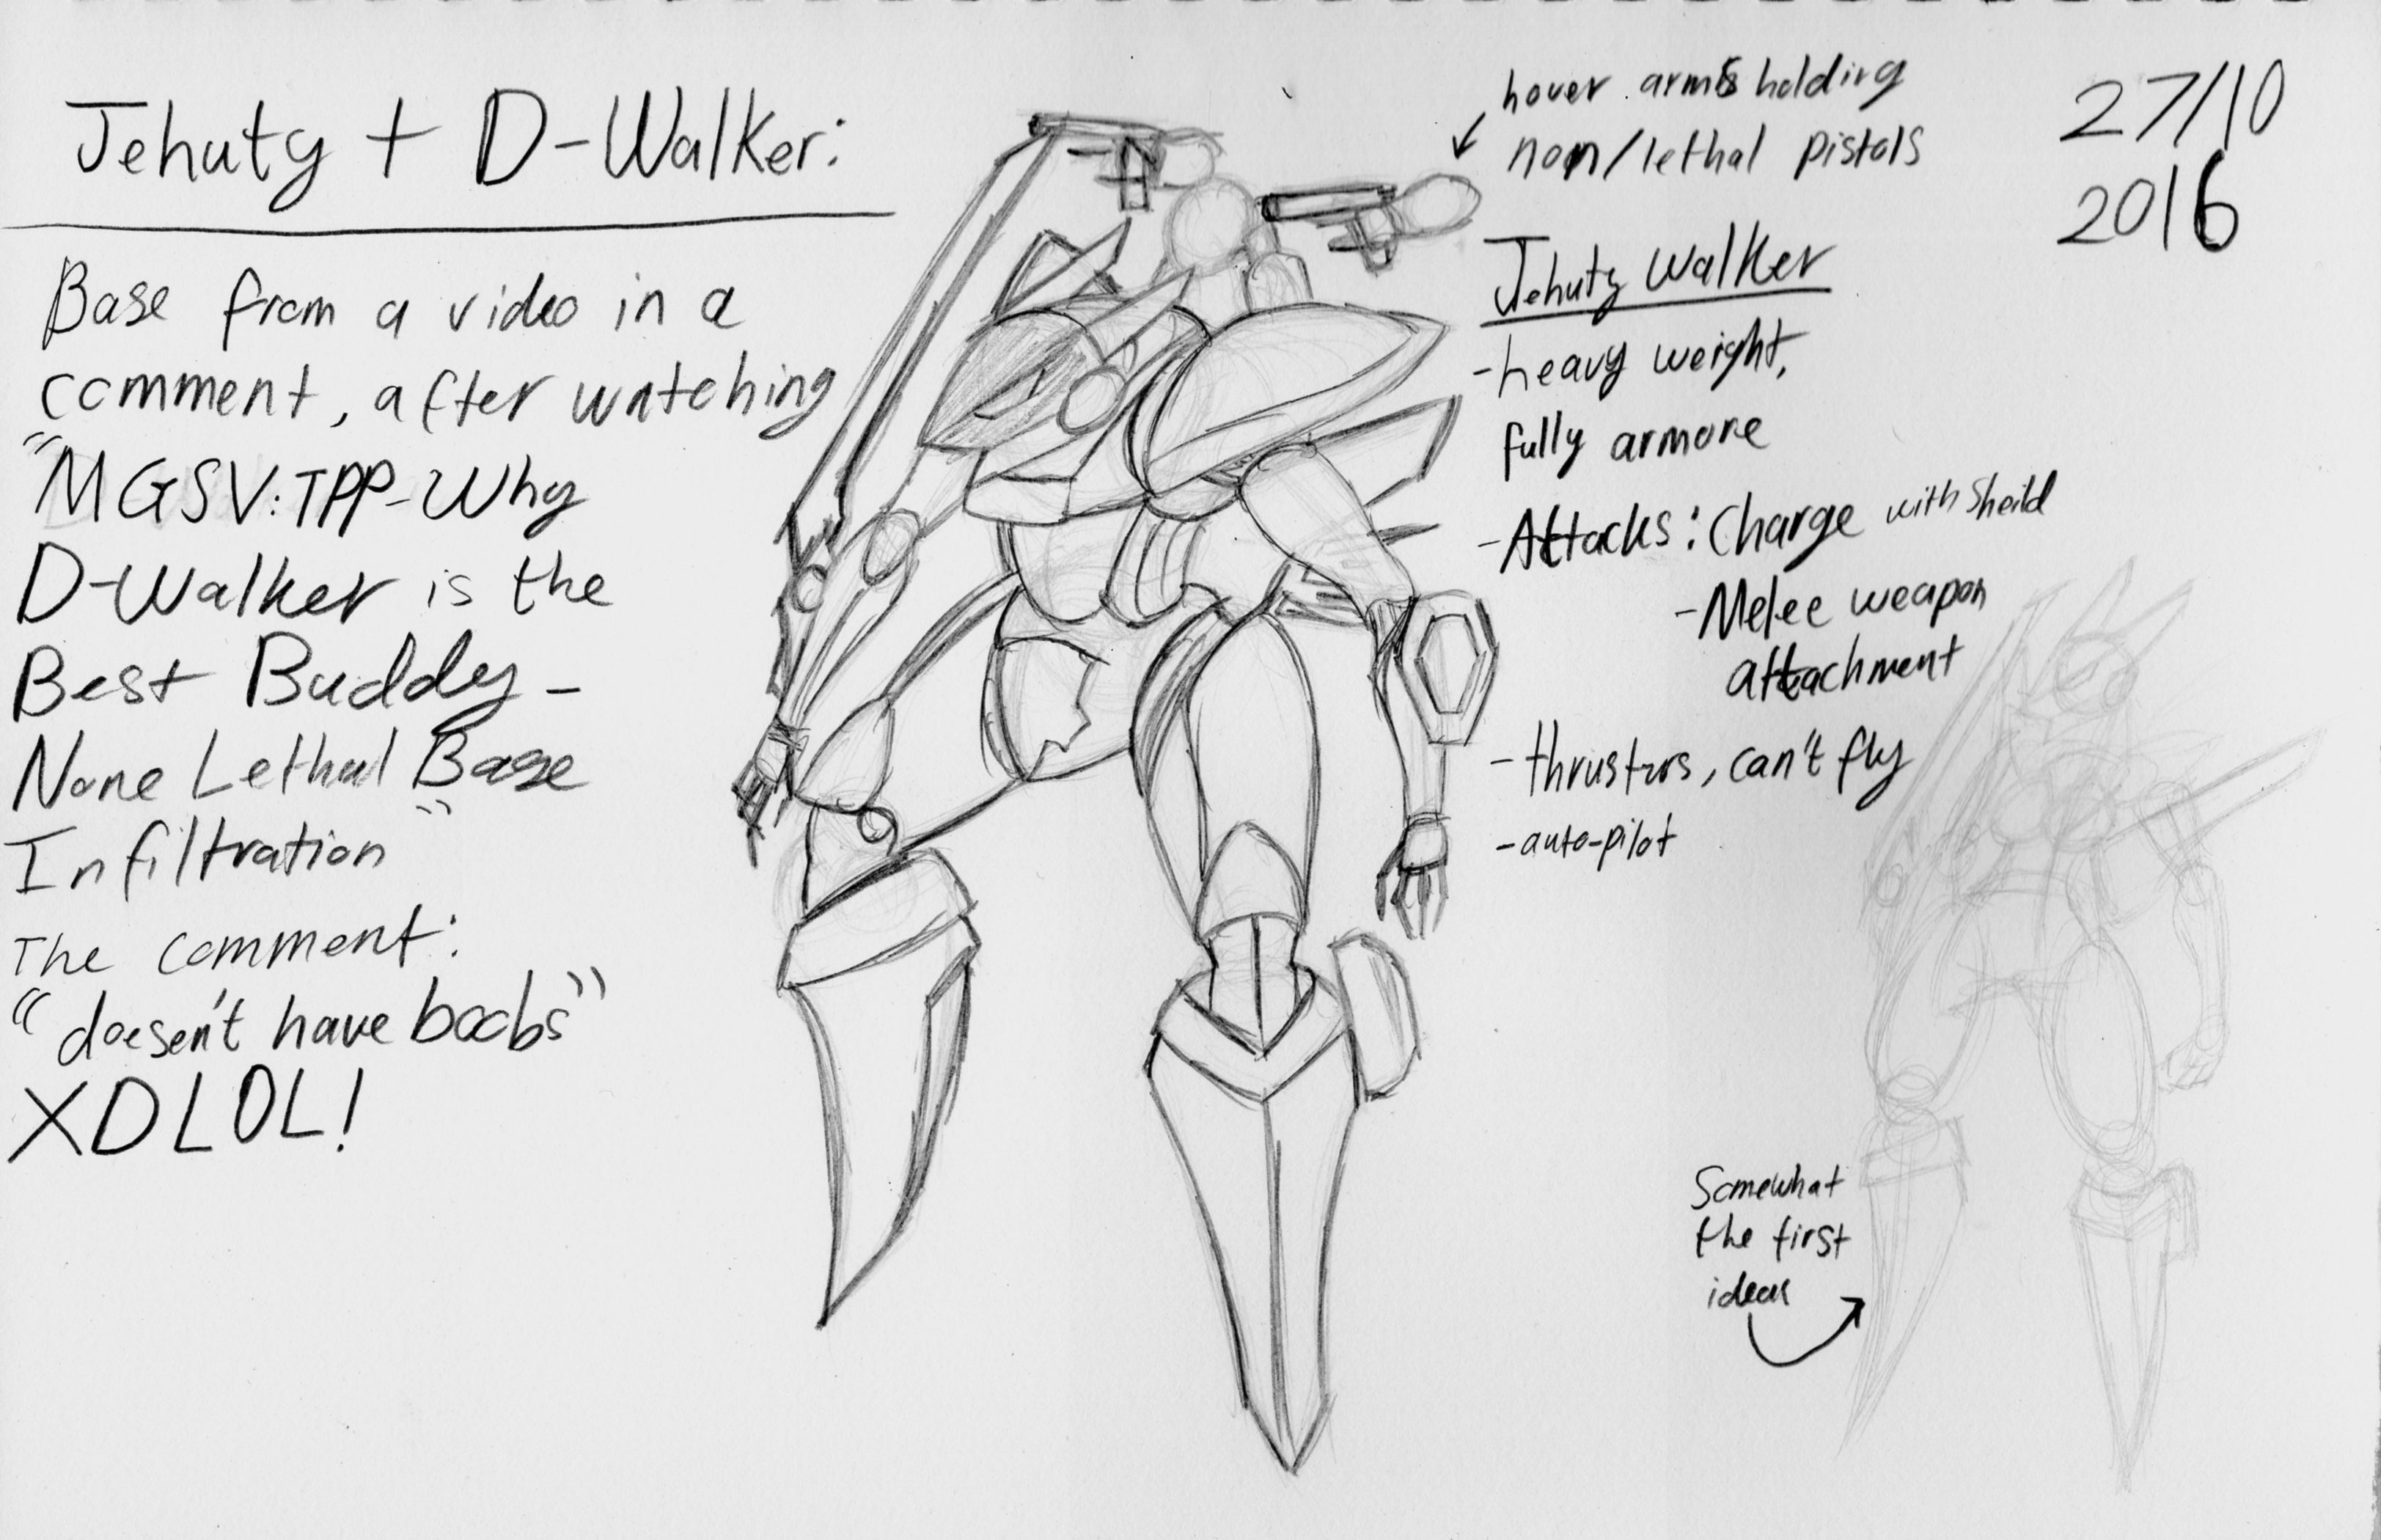 Jehuty + D-Walker:
Base from a video in a
comment, after watching
"MGSV:TPP-Why
D-Walker is the
Best Buddy -
None Lethal Base
Infiltration"
The comment:
"doesen't have boobs"
XDLOL!
hover arms holding
non/lethal pistols
27/10
2016
Jehuty Walker
-heavy weight,
fully armore
-Attacks: Charge with Sheild
-Melee weapon
attachment
-thrusters, can't fly
-auto-pilot
Somewhat
the first
ideas